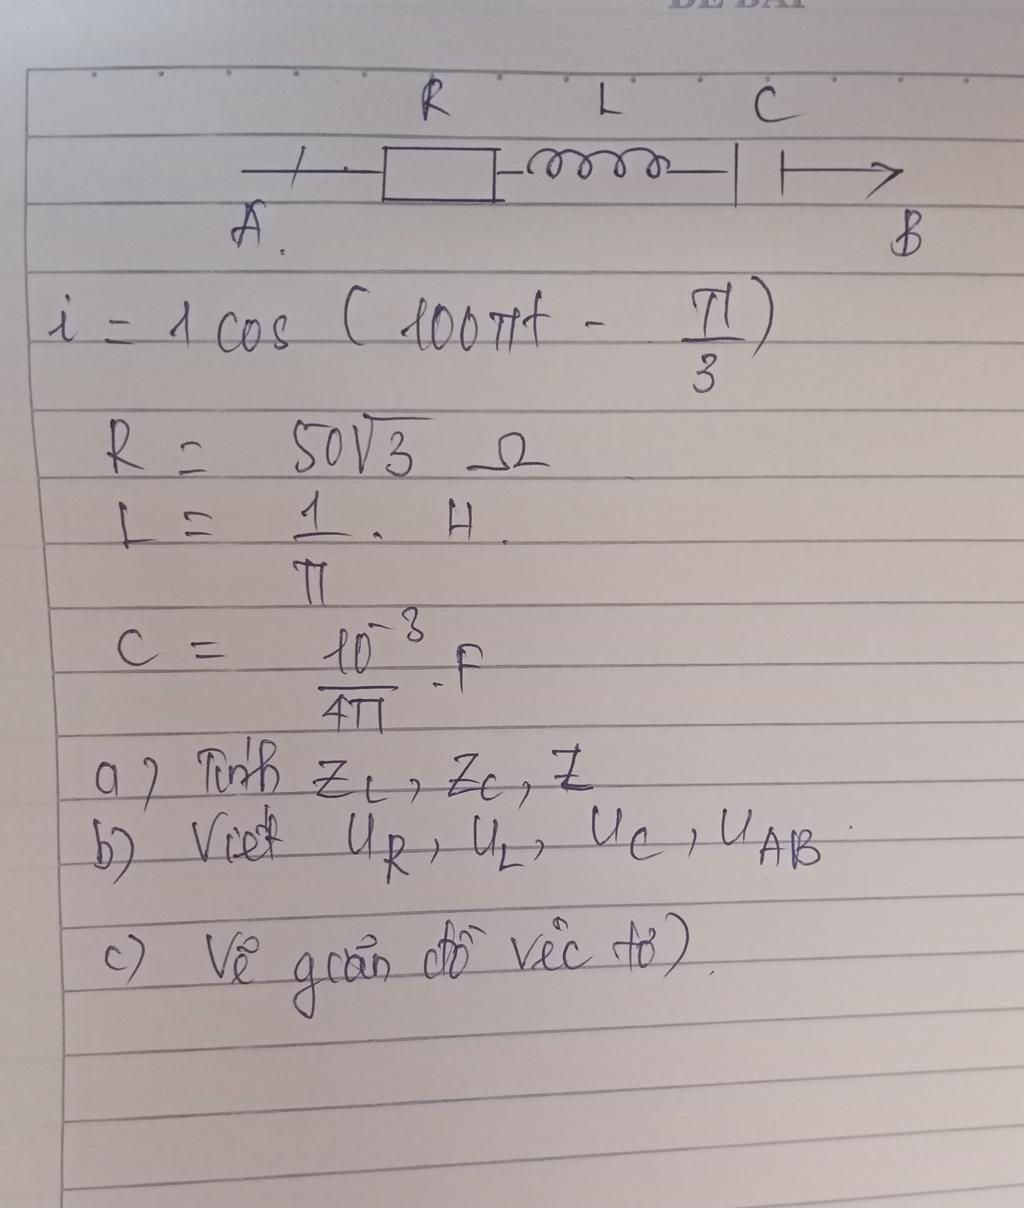 ĐỀ BÀI
R L C
A. B
i = 1 cos (100πt - π/3)
R = 50√3 Ω
L = 1/π . H.
C = 10⁻³/4π . F
a) Tính Z_L, Z_C, Z
b) Viết U_R, U_L, U_C, U_AB
c) Vẽ giản đồ véc tơ)